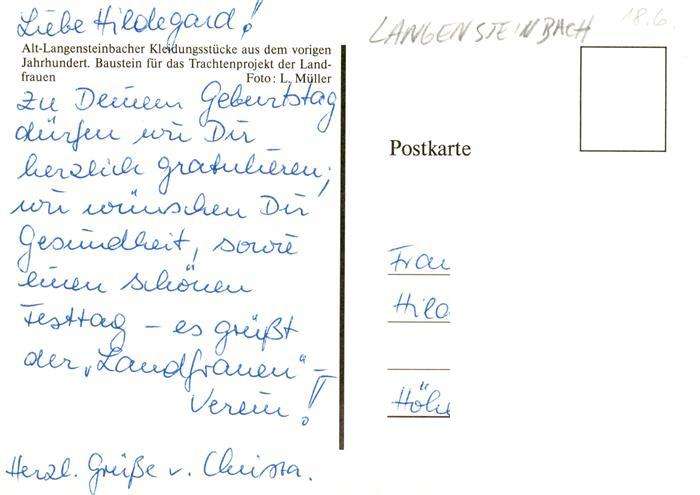 Liebe Hildegard!
Alt-Langensteinbacher Kleidungsstücke aus dem vorigen
Jahrhundert. Baustein für das Trachtenprojekt der Land-
frauen Foto: L. Müller
zu Deinem Geburtstag
dürfen wir Dir
herzlich gratulieren;
wir wünschen Dir
Gesundheit, sowie
einen schönen
Festtag – es grüßt
der „Landfrauen" –
Verein!
Herzl. Grüße v. Christa.
LANGENSTEINBACH 18.6.
Postkarte
Frau
Hild
Höhe